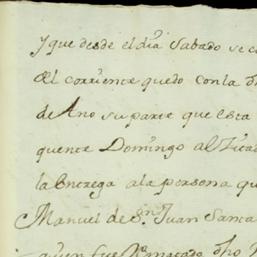 y que desde el dia Sabado se c
del corriente quedo con la
de Ano su parte que esta
quente Domingo al
la Entrega a la persona qu
Manuel de Sn Juan Santa
quien fue Rematado dho